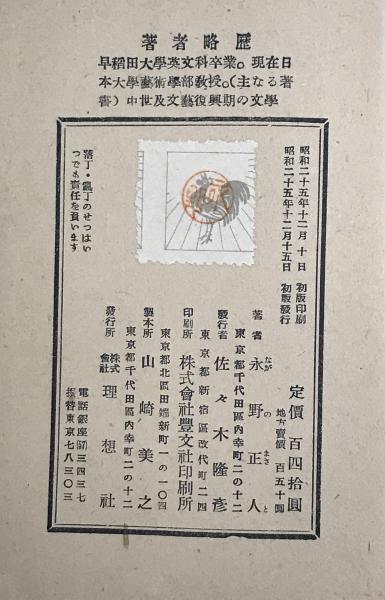 著者略歴
早稲田大學英文科卒業。現在日
本大學藝術學部教授。(主なる著
書)中世及文藝復興期の文學
昭和二十五年十二月 十日 初版印刷
昭和二十五年十二月十五日 初版發行
定價 百四拾圓
地方賣價 百五十圓
著者 永野正人
なが の まさ と
東京都千代田區内幸町二の十二
發行者 佐々木隆彦
東京都新宿區改代町二四
印刷所 株式會社豐文社印刷所
東京都北區田端新町一の一〇四
製本所 山崎美之
東京都千代田區内幸町二の十二
發行所 株式會社 理想社
電話銀座(57)三四三七
振替東京七八三〇三
落丁・亂丁のせつはい
つでも責任を負います